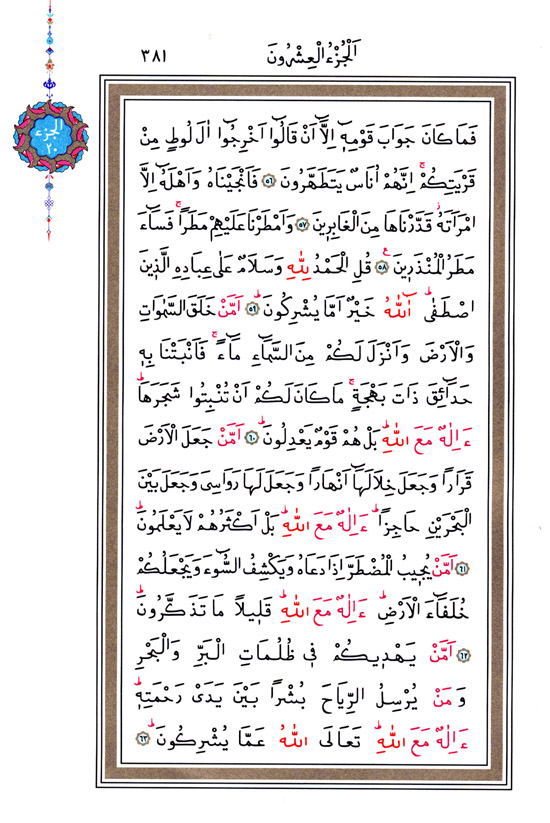 اَلْجُزْءُ الْعِشْرُونَ
٣٨١
الجزء
٢٠
فَمَا كَانَ جَوَابَ قَوْمِهٖٓ اِلَّٓا اَنْ قَالُٓوا اَخْرِجُٓوا اٰلَ لُوطٍ مِنْ
قَرْيَتِكُمْۚ اِنَّهُمْ اُنَاسٌ يَتَطَهَّرُونَ ﴿٥٦﴾ فَاَنْجَيْنَاهُ وَاَهْلَهُٓ اِلَّا
امْرَاَتَهُۘ قَدَّرْنَاهَا مِنَ الْغَابِرِينَ ﴿٥٧﴾ وَاَمْطَرْنَا عَلَيْهِمْ مَطَرًاۚ فَسَٓاءَ
مَطَرُ الْمُنْذَرِينَ۟ ﴿٥٨﴾ قُلِ الْحَمْدُ لِلّٰهِ وَسَلَامٌ عَلٰى عِبَادِهِ الَّذِينَ
اصْطَفٰىۜ آٰللّٰهُ خَيْرٌ اَمَّا يُشْرِكُونَۜ ﴿٥٩﴾ اَمَّنْ خَلَقَ السَّمٰوَاتِ
وَالْاَرْضَ وَاَنْزَلَ لَكُمْ مِنَ السَّمَٓاءِ مَٓاءًۚ فَاَنْبَتْنَا بِهٖ
حَدَٓائِقَ ذَاتَ بَهْجَةٍۚ مَا كَانَ لَكُمْ اَنْ تُنْبِتُوا شَجَرَهَاۜ
ءَاِلٰهٌ مَعَ اللّٰهِۜ بَلْ هُمْ قَوْمٌ يَعْدِلُونَۜ ﴿٦٠﴾ اَمَّنْ جَعَلَ الْاَرْضَ
قَرَارًا وَجَعَلَ خِلَالَهَٓا اَنْهَارًا وَجَعَلَ لَهَا رَوَاسِيَ وَجَعَلَ بَيْنَ
الْبَحْرَيْنِ حَاجِزًاۜ ءَاِلٰهٌ مَعَ اللّٰهِۜ بَلْ اَكْثَرُهُمْ لَا يَعْلَمُونَۜ
﴿٦١﴾ اَمَّنْ يُجِيبُ الْمُضْطَرَّ اِذَا دَعَاهُ وَيَكْشِفُ السُّٓوءَ وَيَجْعَلُكُمْ
خُلَفَٓاءَ الْاَرْضِۜ ءَاِلٰهٌ مَعَ اللّٰهِۜ قَلِيلًا مَا تَذَكَّرُونَۜ
﴿٦٢﴾ اَمَّنْ يَهْدِيكُمْ فِي ظُلُمَاتِ الْبَرِّ وَالْبَحْرِ
وَمَنْ يُرْسِلُ الرِّيَاحَ بُشْرًا بَيْنَ يَدَيْ رَحْمَتِهٖۜ
ءَاِلٰهٌ مَعَ اللّٰهِۜ تَعَالَى اللّٰهُ عَمَّا يُشْرِكُونَۜ ﴿٦٣﴾